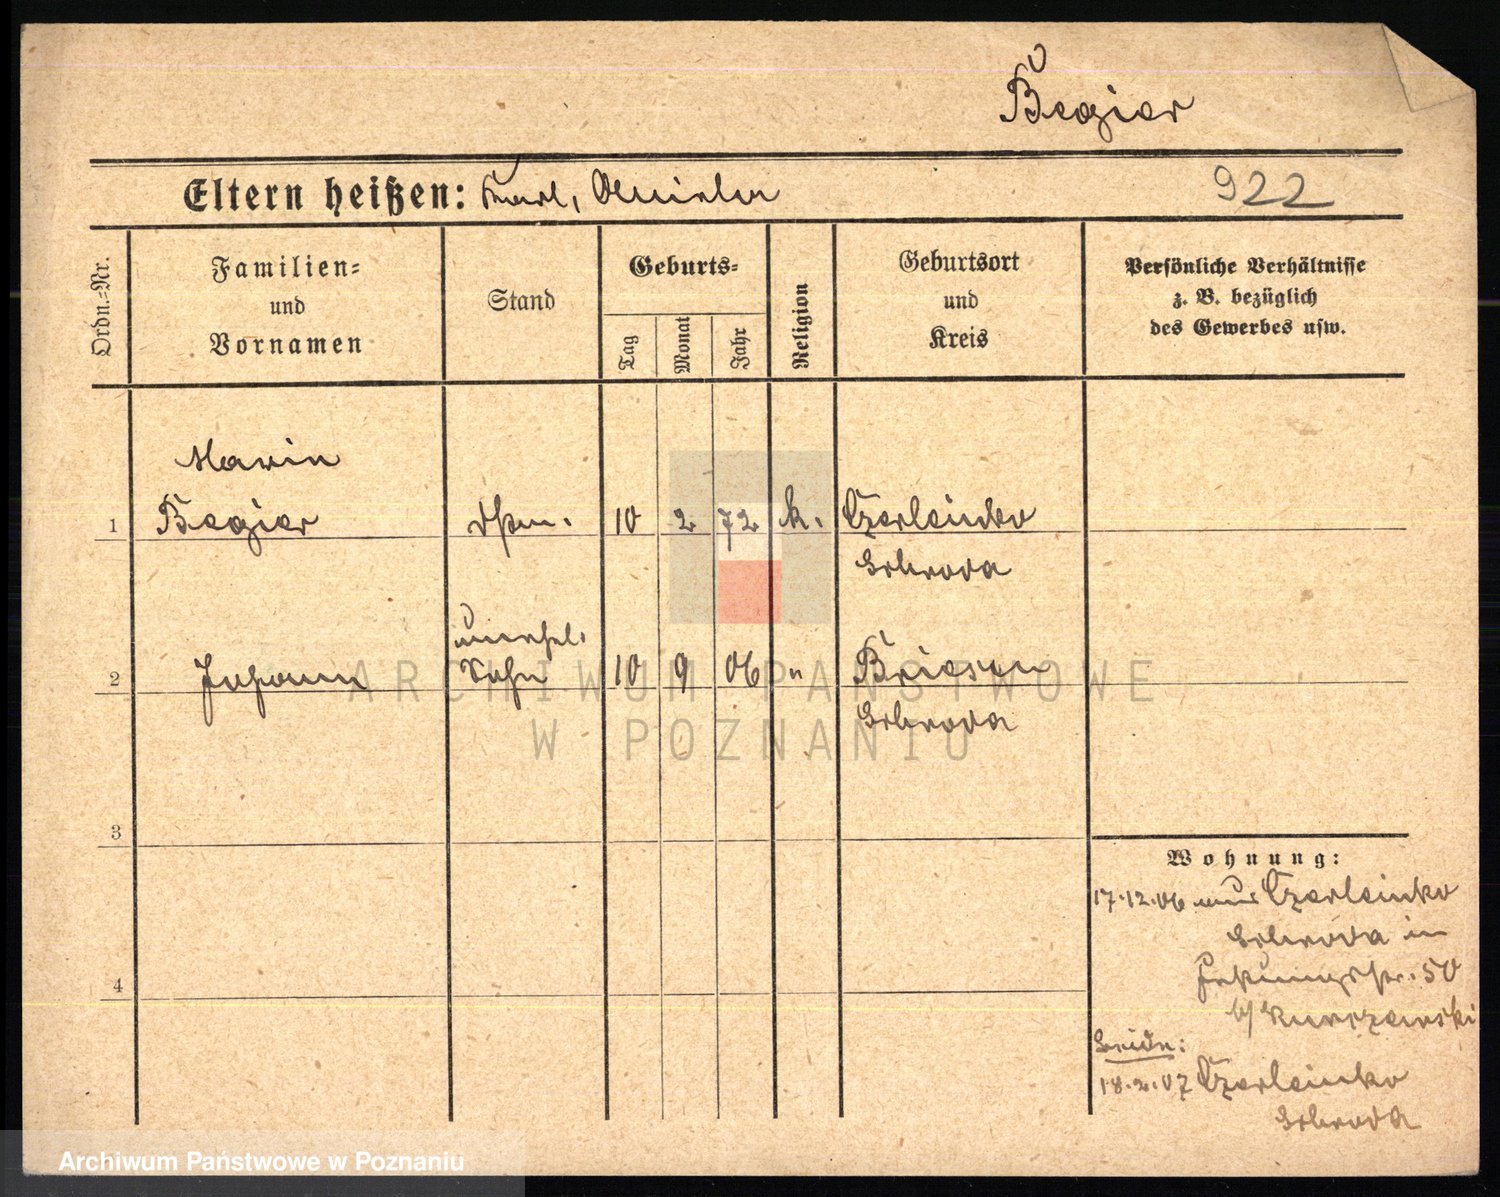 Begier
Eltern heißen: Karl,
922
Ordn.-Nr.
Familien-
und
Vornamen
Stand
Geburts-
Tag
Monat
Jahr
Religion
Geburtsort
und
Kreis
Persönliche Verhältnisse
z. B. bezüglich
des Gewerbes usw.
Marie
1 Begier 10 2 72 k. Czerleinko
Schroda
unehel.
2 Johann Sohn 10 9 06 " Briesen
Schroda
3
4
Wohnung:
17.12.06 aus Czerleinko
Schroda in
50
b/
Beide:
18.2.07 Czerleinko
Schroda
ARCHIWUM PAŃSTWOWE
W POZNANIU
Archiwum Państwowe w Poznaniu